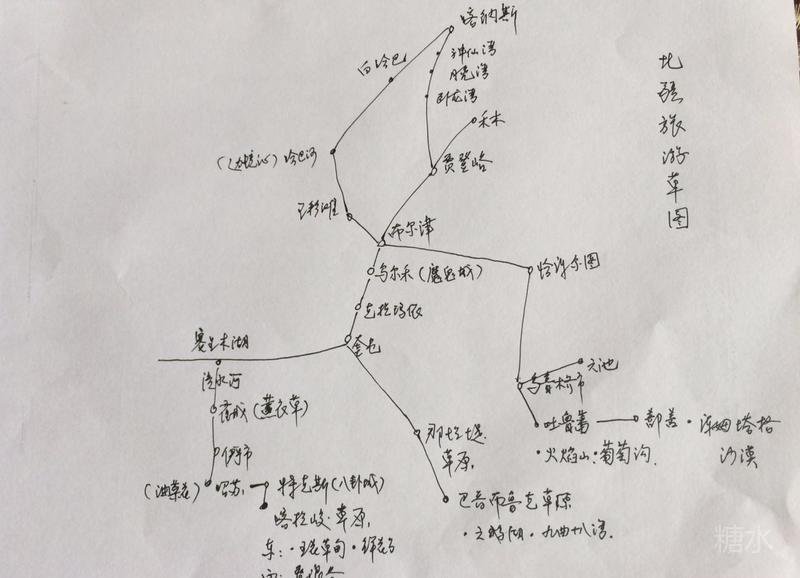 北疆旅游草图
喀纳斯
神仙湾
月亮湾
卧龙湾
禾木
贾登峪
白哈巴
哈巴河
五彩滩
布尔津
乌尔禾（魔鬼城）
克拉玛依
奎屯
恰库尔图
乌鲁木齐市
天池
吐鲁番
鄯善·库姆塔格
沙漠
·火焰山·葡萄沟
赛里木湖
清水河
霍城（薰衣草）
伊宁市
（油菜花）昭苏
特克斯（八卦城）
喀拉峻·草原
东：
那拉提
草原
巴音布鲁克草原
·天鹅湖·九曲十八湾
糖水